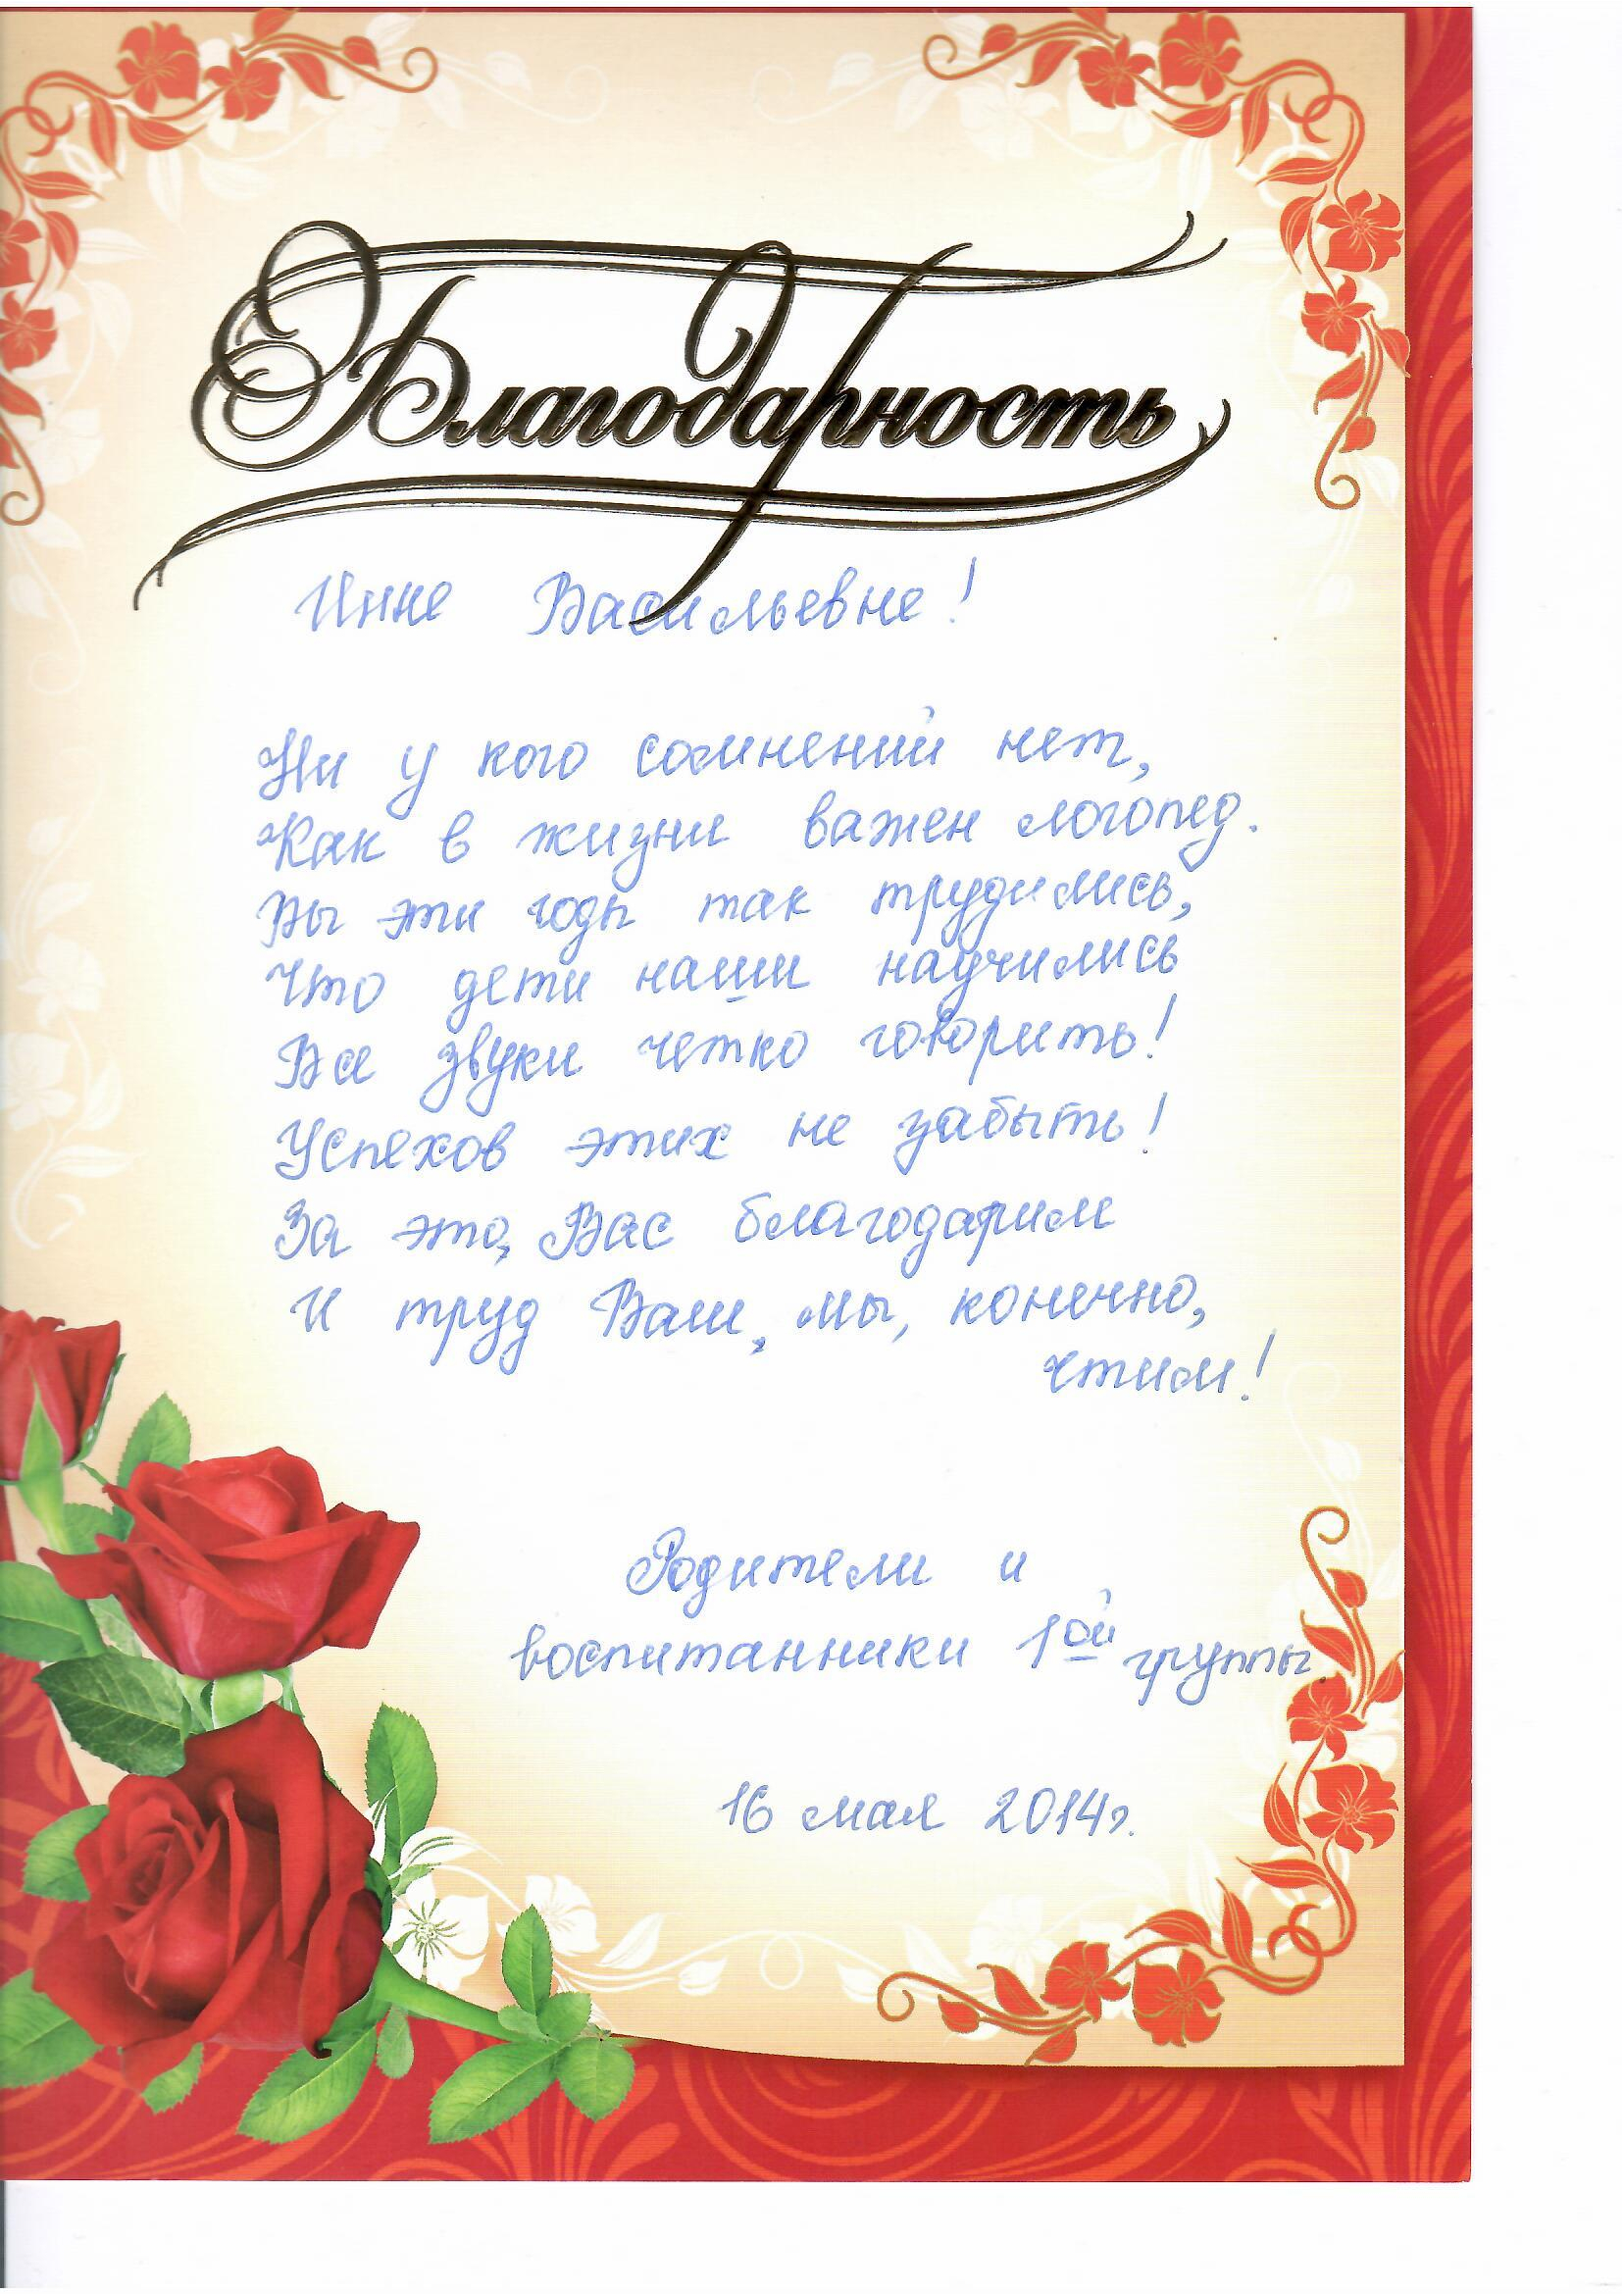 Благодарность
Инне Васильевне!
Ни у кого сомнений нет,
Как в жизни важен логопед.
Вы эти годы так трудились,
Что дети наши научились
Все звуки четко говорить!
Успехов этих не забыть!
За это, Вас благодарим
И труд Ваш, мы, конечно,
чтим!
Родители и
воспитанники 1ой группы.
16 мая 2014г.